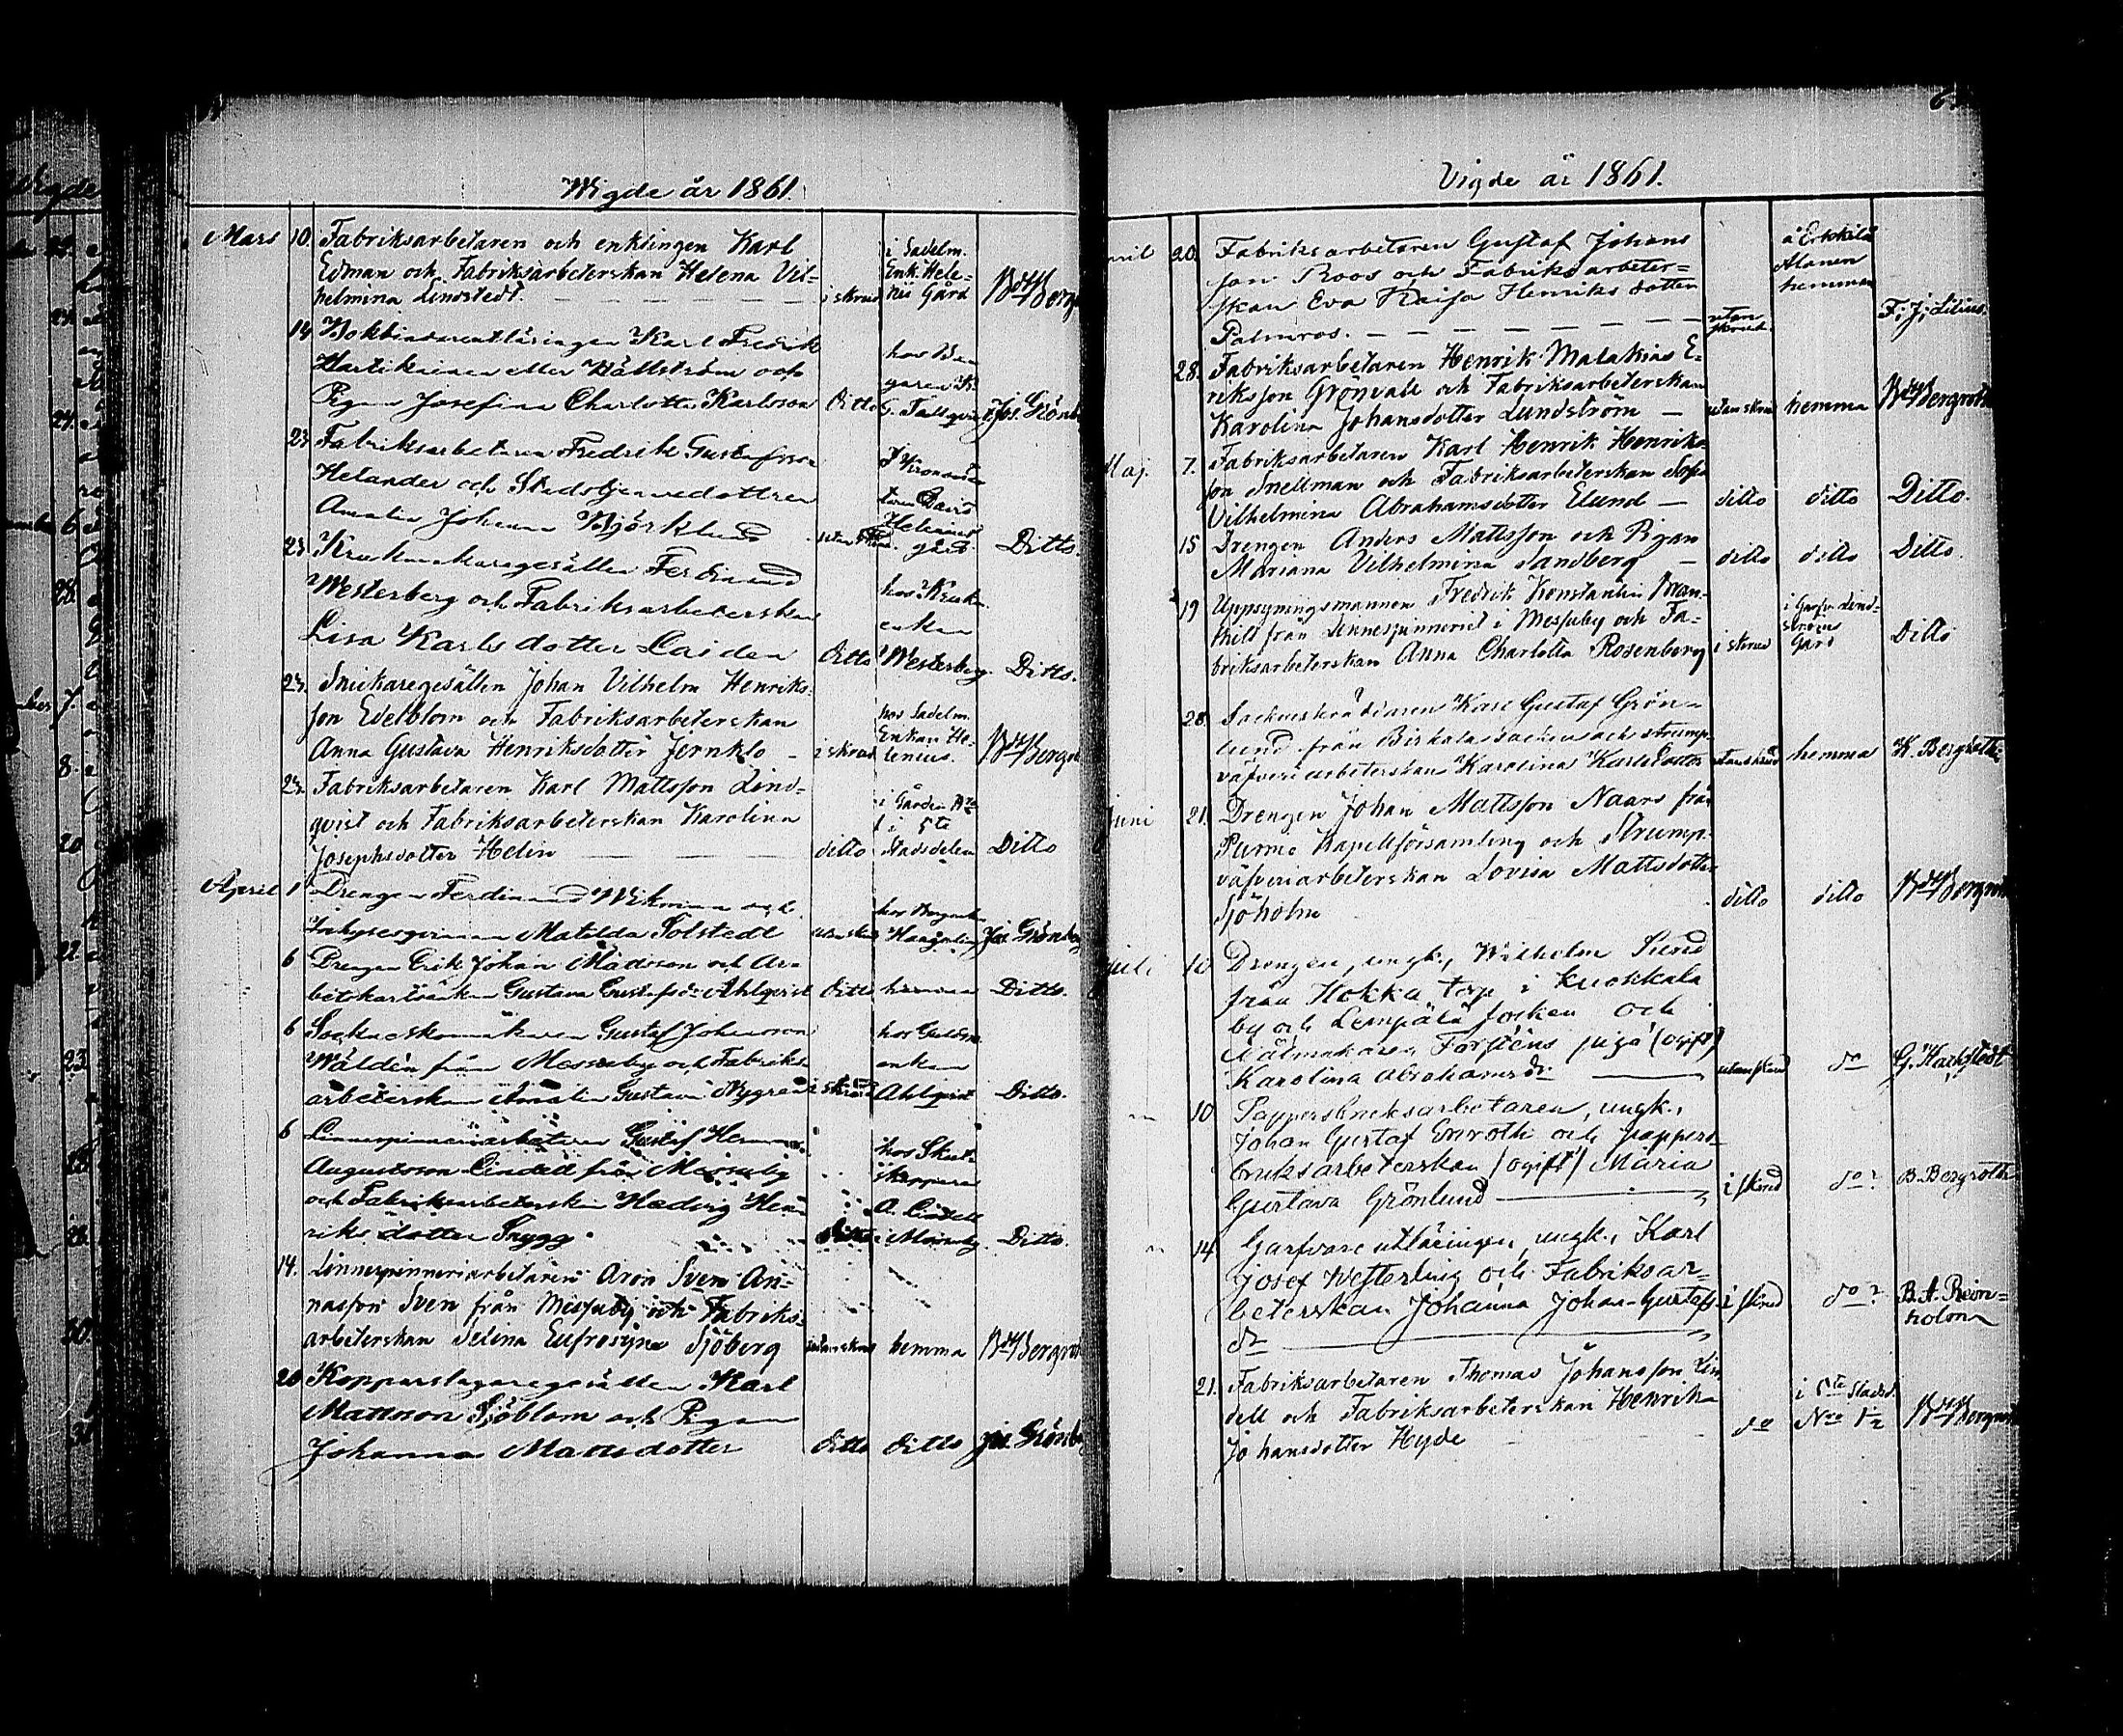 Wigde år 1861.
Mars 10. Fabriksarbetaren och enklingen Karl
Edman och Fabriksarbeterskan Helena Vil-
helmina Lindstedt. i skrud
i Sadelm.
Enk. Hele-
nii Gård
14 Bokbindareutläringen Karl Fredrik
eller Hällström och
Pigan Josefina Charlotta Karlsson Ditto Jos. Grönb
hos
garen K.
23. Fabriksarbetaren Fredrik Gustafsson
Helander och dottren
Amalia Johanna Björklund Ditto.
gård.
23. Krukomakaregesällen Ferdinand
Westerberg och Fabriksarbeterskan
Lisa Karlsdotter Laiden Ditto Westerberg Ditto.
hos Kruk
enkan
23. Snickaregesällen Johan Vilhelm Henriks-
son Edelblom och Fabriksarbeterskan
Anna Gustava Henriksdotter Jernklo - i skrud
hos Sadelm.
Enkan He-
lenius.
23. Fabriksarbetaren Karl Mattsson Lind-
qvist och Fabriksarbeterskan Karolina
Josephsdotter Helin ditto Ditto
i Gården
i 5te
Stadsdelen
April 1 Drengen Ferdinand Wikman och
Matilda Solstedt utan skrud Jos. Grönberg
6 Drengen Erik Johan Mattsson och Ar-
betskarlsenkan Gustava Gustafsdr Ahlqvist Ditto hemma Ditto.
6 Sockneskomakaren Gustaf Johansson
Wäldén från Messuby och Fabriks-
arbeterskan Amalia Gustava Nygren i skrud Ahlqvist Ditto.
hos
enkan
6 Linnespinneriarbetaren Gustaf Herman
Augustsson Lindell från Messuby
och Fabriksarbeterskan Hedvig Hen-
riksdotter Snygg. Ditto i Messuby. Ditto.
hos
skepparen
A. Lindell
14. Linnespinneriarbetaren Aron Sven An-
nasson Sven från Messuby och Fabriks-
arbeterskan Selina Eufrosyne Sjöberg utan skrud hemma
20 Kopparslagaregesällen Karl
Mattsson Sjöblom och Pigan
Johanna Mattsdotter Ditto Ditto Jos. Grönb
Vigde år 1861.
20. Fabriksarbetaren Gustaf Johans
son Roos och Fabriksarbeter=
skan Eva Kaisa Henriksdotter
Palmros. utan skrud F. J. Lilius.
å Erkkilä
Alanen
hemman
28. Fabriksarbetaren Henrik Malakias E-
riksson Grönvall och Fabriksarbeterskan
Karolina Johansdotter Lundström - utan skrud hemma
Maj. 7. Fabriksarbetaren Karl Henrik Henriks-
son Snellman och Fabriksarbeterskan Sofia
Vilhelmina Abrahamsdotter Elund - ditto ditto Ditto.
15 Drengen Anders Mattsson och Pigan
Mariana Vilhelmina Sandberg - ditto ditto Ditto.
19 Uppsyningsmannen Fredrik Konstantin
från Linnespinneriet i Messuby och Fa-
briksarbeterskan Anna Charlotta Rosenberg i skrud Ditto
i Garfv. Lind-
ströms
Gård
28. Sockneskräddaren Karl Gustaf Grön-
lund från Birkala socken och strump-
väfveriarbeterskan Karolina Karlsdotter utan skrud hemma K. Bergroth
Juni 21. Drengen Johan Mattsson Naars från
Purmo Kapellförsamling och Strump-
väfveriarbeterskan Lovisa Mattsdotter
Sjöholm ditto ditto
Juli 10 Drengen, ungk., Wilhelm Sund
från Hokka torp i Kuokkala
by och Lempälä socken och
Forsténs piga (ogift)
Karolina Abrahamsdr utan skrud do G. Hackstedt
10 Pappersbruksarbetaren, ungk.,
Johan Gustaf Enroth och pappers-
bruksarbeterskan (ogift) Maria
Gustava Grönlund i skrud do B. Bergroth
14 Garfvare utläringen, ungk., Karl
Josef Westerling och Fabriksar-
beterskan Johanna Johan-Gustafs- i skrud do B. A. Reon=
dr holm
21. Fabriksarbetaren Thomas Johansson Lin
dell och Fabriksarbeterskan Henrika
Johansdotter Hyde do